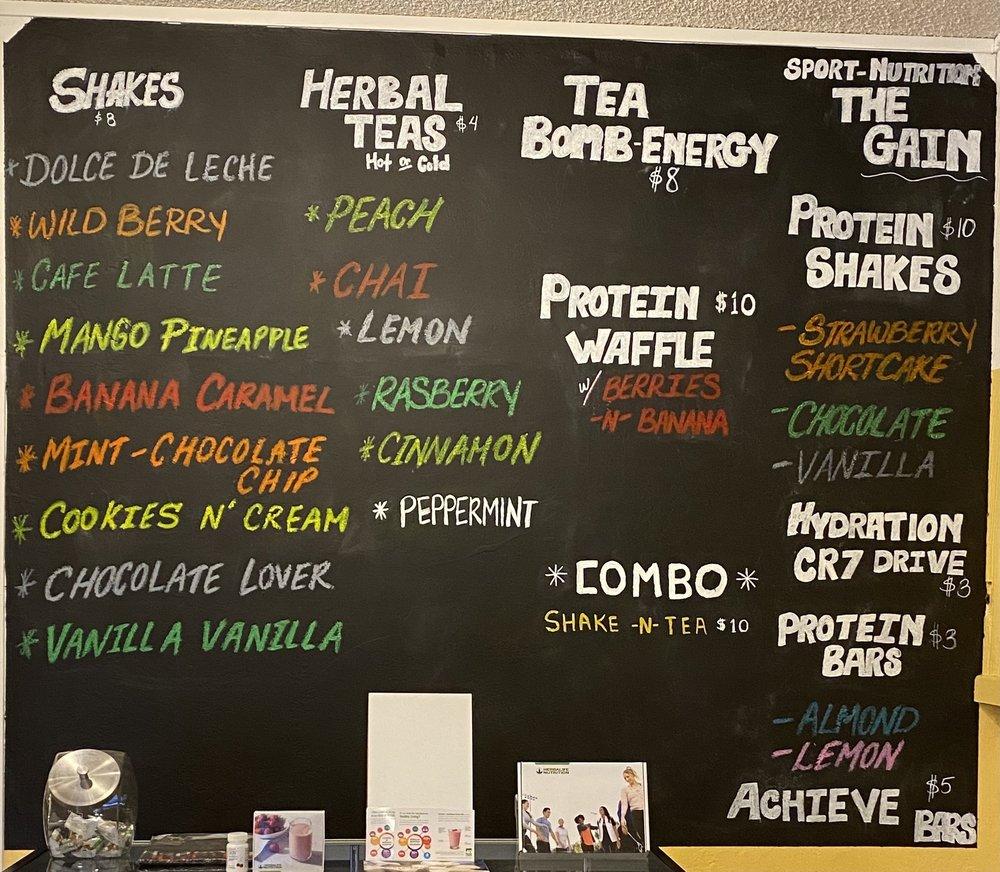 SHAKES
$8
* DOLCE DE LECHE
* WILD BERRY
* CAFE LATTE
* MANGO PINEAPPLE
* BANANA CARAMEL
* MINT-CHOCOLATE
CHIP
* COOKIES N' CREAM
* CHOCOLATE LOVER
* VANILLA VANILLA
HERBAL
TEAS $4
Hot or Cold
* PEACH
* CHAI
* LEMON
* RASBERRY
* CINNAMON
* PEPPERMINT
TEA
BOMB-ENERGY
$8
PROTEIN $10
WAFFLE
w/ BERRIES
-N- BANANA
* COMBO *
SHAKE -N- TEA $10
SPORT-NUTRITION
THE
GAIN
PROTEIN $10
SHAKES
- STRAWBERRY
SHORTCAKE
- CHOCOLATE
- VANILLA
HYDRATION
CR7 DRIVE
$3
PROTEIN $3
BARS
- ALMOND
- LEMON
ACHIEVE $5
BARS
HERBALIFE
NUTRITION